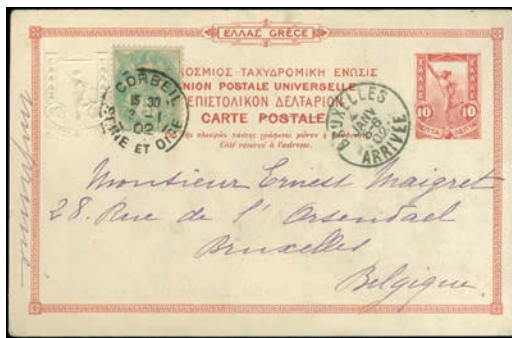 ΕΛΛΑΣ GRÈCE
ΚΟΣΜΙΟΣ ΤΑΧΥΔΡΟΜΙΚΗ ΕΝΩΣΙΣ
UNION POSTALE UNIVERSELLE
ΕΠΙΣΤΟΛΙΚΟΝ ΔΕΛΤΑΡΙΟΝ
CARTE POSTALE
Côté réservé à l'adresse.
CORBEIL
15 30
02
SEINE ET OISE
BRUXELLES
JANV
1902
ARRIVÉE
ΕΛΛΑΣ
10 10
Monsieur Ernest Maigret
28. Rue de l'Orsendael
Bruxelles
Belgique.